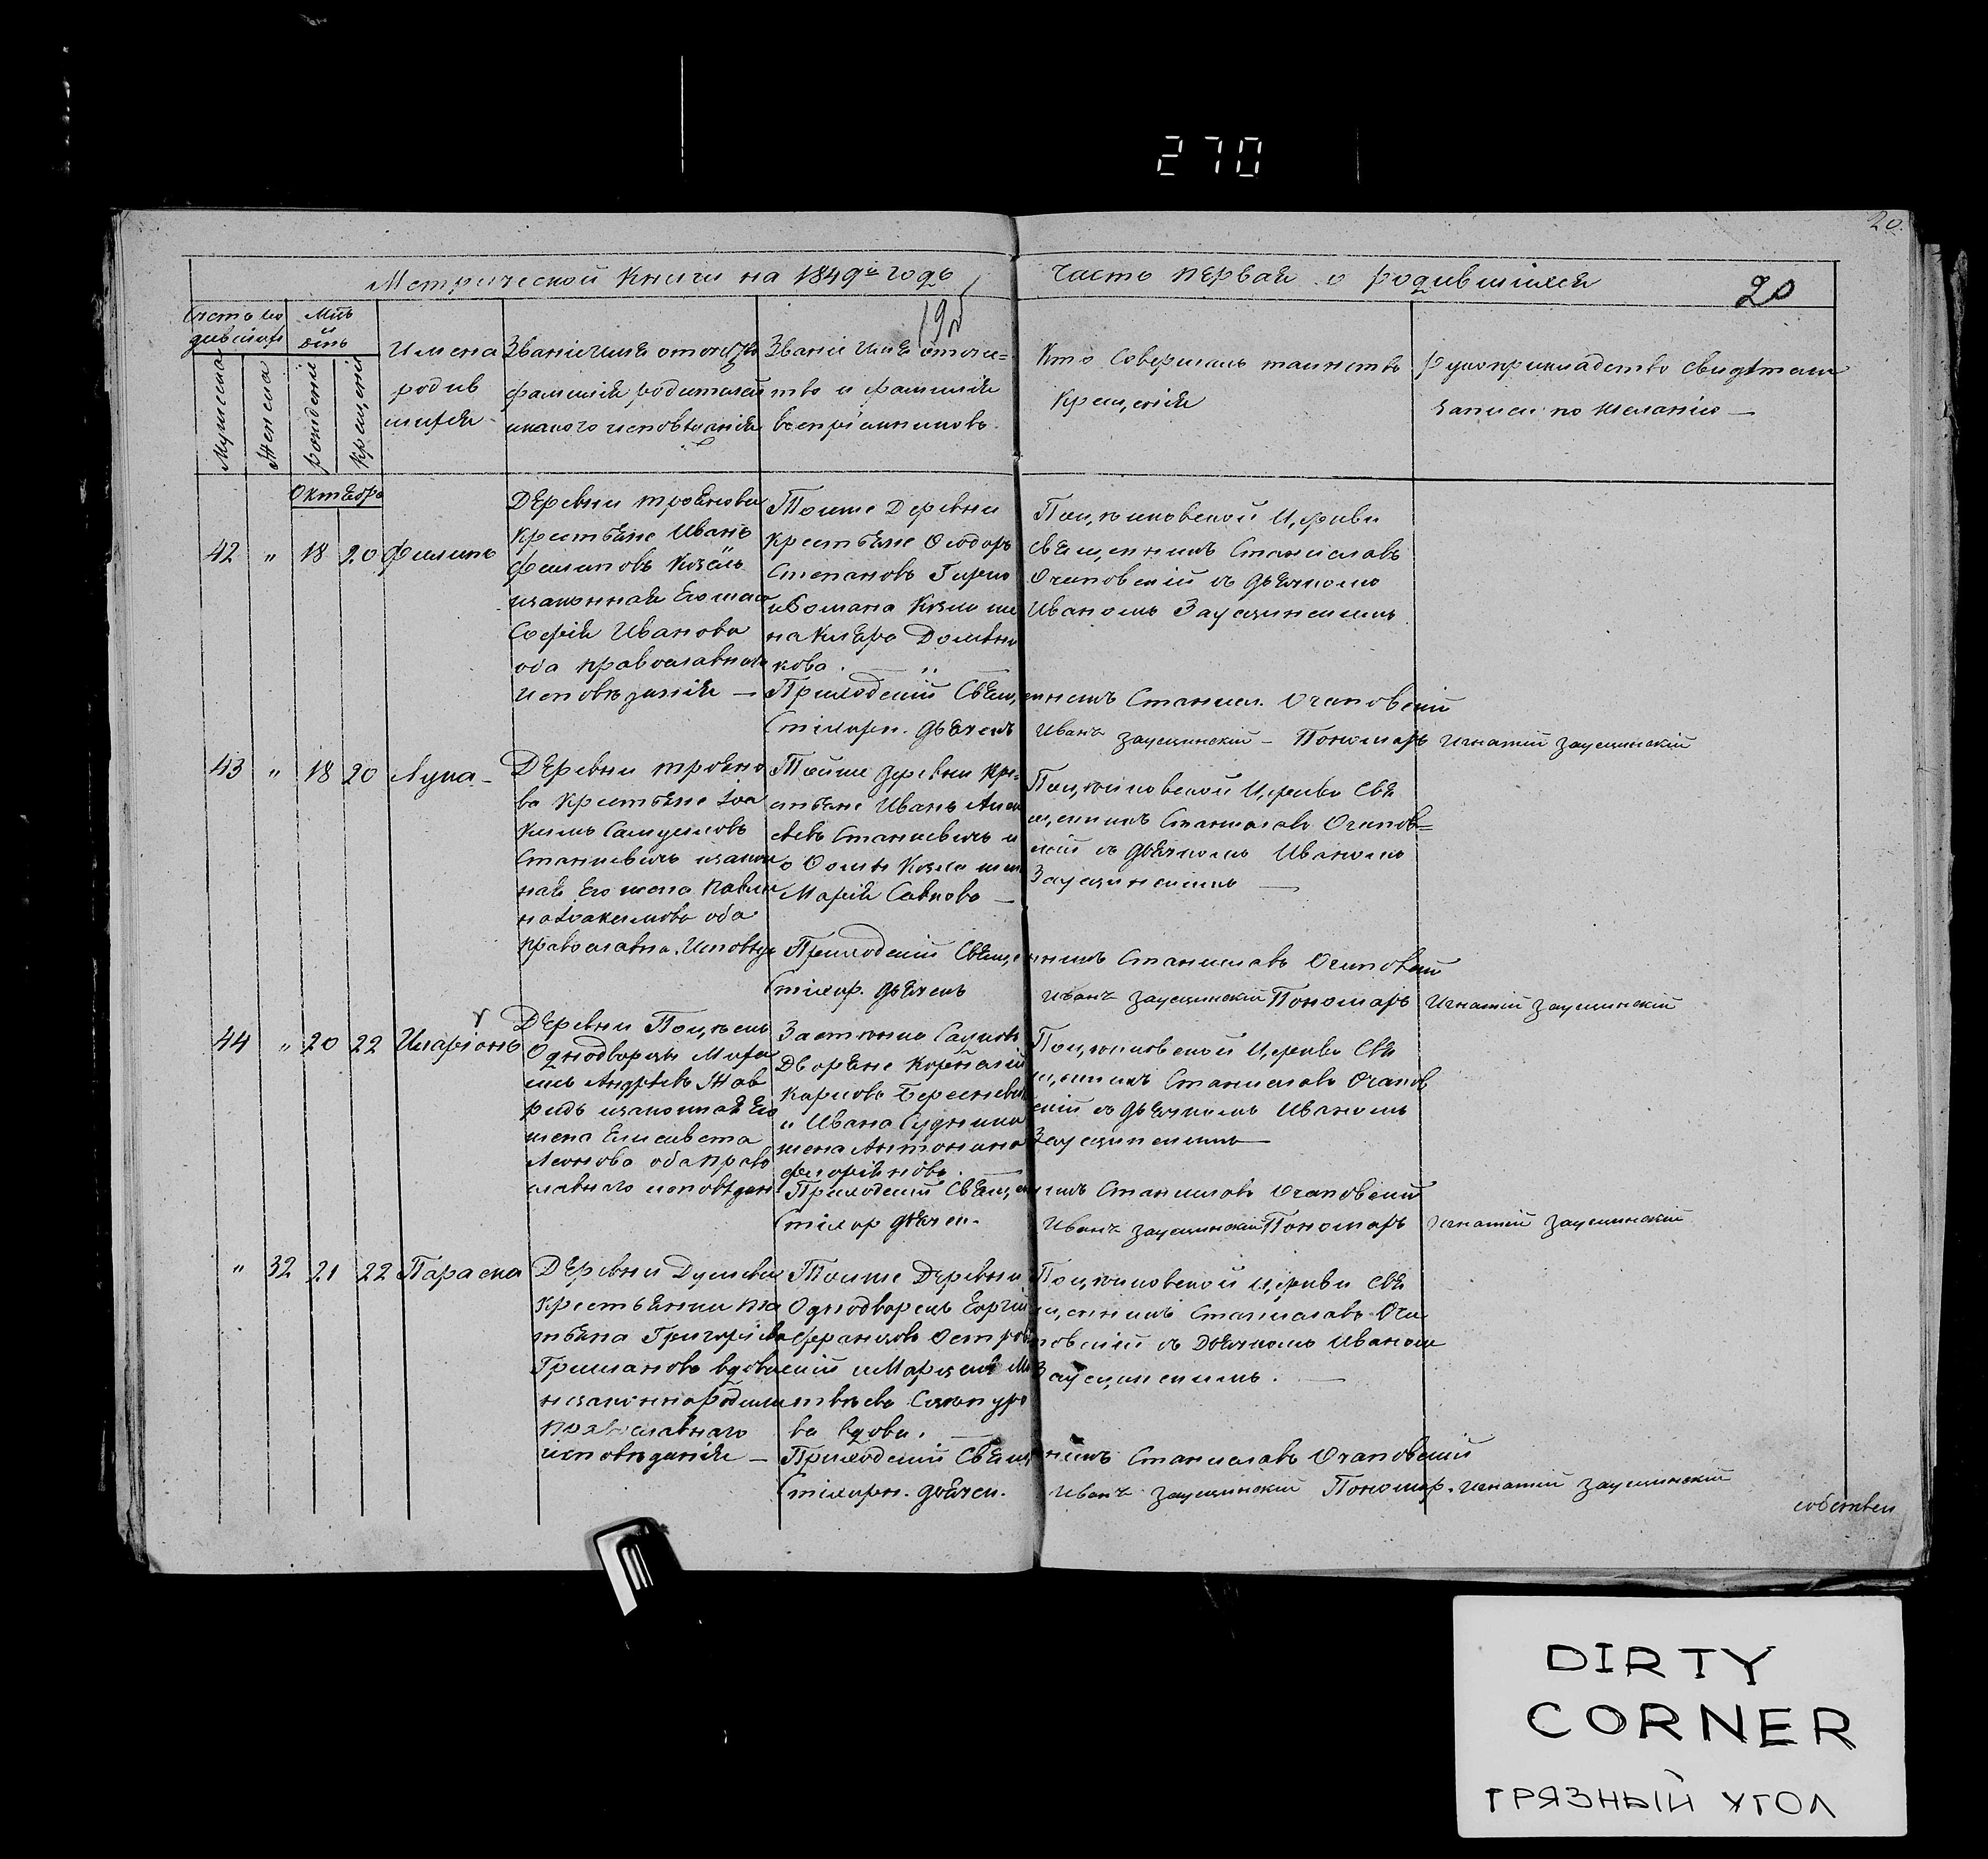 270
20.
Метрической книги на 1849й годъ
часть первая о родившихся
20
19
Счетъ ро
дившихъ
Мцъ
и
день
Мужеска
Женска
рожденія
крещенія
Имена
родив
шихся
Званіе имя отчество
фамилія родителей
и какого исповеданія
Званіе имя отече=
тво и фамилія
воспріемниковъ
Кто совершалъ таинство
крещенія
рукоприкладство свидѣтелей
записи по желанію —
Октября
42 " 18 20 Филипъ
Деревни
крестьяне Иванъ
Филиповъ Козелъ
и законная его жена
Софія Иванова
оба православнаго
исповѣданія —
Тоиже Деревни
крестьяне Ѳеодоръ
Степановъ
и Романа Козла же
на
кова. — "
Церкви
священникъ Станиславъ
Очаповскій съ дьячкомъ
Иваномъ Заусцинскимъ
Приходскій Священникъ Станисл. Очаповскій
Стихарн. дьячекъ Иванъ Заусцинскій – Пономарь Игнатій Заусцинскій
43 " 18 20 Лука –
Деревни
ва крестьяне Іоа
кимъ Самуиловъ
Станкевичъ и закон
ная его жена Павли
на Іоакимова оба
православна. исповѣд
Тойже деревни кре=
стьяне Иванъ Алек
сѣевъ Станкевичъ и
Ѳомы Козла жена
Марія Савкова —
Церкви Свя
щенникъ Станиславъ Очапов=
скій съ дьячкомъ Иваномъ
Заусцинскимъ —
Приходскій Священникъ Станиславъ Очаповскій
Стихар. дьячекъ Иванъ Заусцинскій Пономарь Игнатій Заусцинскій
44 " 20 22 Иларіонъ
Деревни
Однодворцы
Андреевъ Жав
ридъ и законная его
жена Елисавета
Леонова оба право
славнаго исповѣдан.
Застѣнка
Дворяне Корнилій
Карповъ
и Ивана Судника
жена Антонина
Флоріянова. —
Церкви Свя
щенникъ Станиславъ Очапов
скій съ дьячкомъ Иваномъ
Заусцинскимъ —
Приходскій Священникъ Станиславъ Очаповскій
Стихар дьячек. Иванъ Заусцинскій Пономарь Игнатій Заусцинскій
" 32 21 22 Параска
Деревни
крестьянки Та
тьяна Григоріева
вдова
незаконнародила
православнаго
исповѣданія —
Тоиже Деревни
Однодворецъ
Францовъ Остров
скій и
твѣева
ва вдова. —
Церкви Свя
щенникъ Станиславъ Оча
повскій съ Дьячкомъ Иваномъ
Заусцинскимъ. —
Приходскій Священникъ Станиславъ Очаповскій
Стихарн. дьячек. Иванъ Заусцинскій Пономар. Игнатій Заусцинскій
собствен
DIRTY
CORNER
ГРЯЗНЫЙ УГОЛ